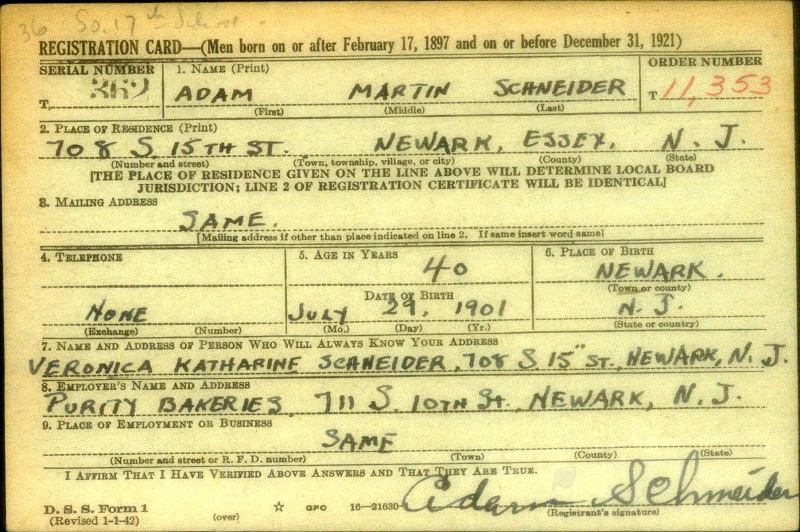 36 So. 17th School
REGISTRATION CARD—(Men born on or after February 17, 1897 and on or before December 31, 1921)
SERIAL NUMBER 1. NAME (Print) ORDER NUMBER
T 362 ADAM MARTIN SCHNEIDER T 11,353
(First) (Middle) (Last)
2. PLACE OF RESIDENCE (Print)
708 S. 15TH ST. NEWARK, ESSEX, N. J.
(Number and street) (Town, township, village, or city) (County) (State)
[THE PLACE OF RESIDENCE GIVEN ON THE LINE ABOVE WILL DETERMINE LOCAL BOARD
JURISDICTION; LINE 2 OF REGISTRATION CERTIFICATE WILL BE IDENTICAL]
3. MAILING ADDRESS
SAME.
[Mailing address if other than place indicated on line 2. If same insert word same]
4. TELEPHONE 5. AGE IN YEARS 6. PLACE OF BIRTH
40 NEWARK.
DATE OF BIRTH (Town or county)
NONE JULY 29, 1901 N. J.
(Exchange) (Number) (Mo.) (Day) (Yr.) (State or country)
7. NAME AND ADDRESS OF PERSON WHO WILL ALWAYS KNOW YOUR ADDRESS
VERONICA KATHARINE SCHNEIDER, 708 S. 15" ST., NEWARK, N. J.
8. EMPLOYER'S NAME AND ADDRESS
PURITY BAKERIES, 711 S. 10TH St., NEWARK, N. J.
9. PLACE OF EMPLOYMENT OR BUSINESS
SAME
(Number and street or R. F. D. number) (Town) (County) (State)
I AFFIRM THAT I HAVE VERIFIED ABOVE ANSWERS AND THAT THEY ARE TRUE.
Adam Schneider
D. S. S. Form 1 (over) GPO 16—21630 (Registrant's signature)
(Revised 1-1-42)